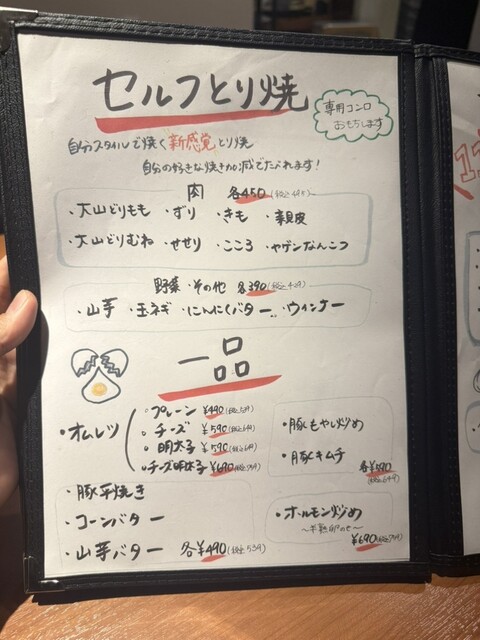 セルフとり焼
専用コンロ
おもちします
自分スタイルで焼く新感覚とり焼
自分の好きな焼き加減でたべれます!
肉 各450(税込495)
・大山どりもも ・ずり ・きも ・親皮
・大山どりむね ・せせり ・こころ ・ヤゲンなんこつ
野菜・その他 各390(税込429)
・山芋 ・玉ネギ ・にんにくバター ・ウィンナー
一品
・オムレツ
・プレーン ¥490(税込539)
・チーズ ¥590(税込649)
・明太子 ¥590(税込649)
・チーズ明太子 ¥690(税込759)
・豚もやし炒め
・豚キムチ
各¥590
(税込649)
・豚平焼き
・コーンバター
・山芋バター 各¥490(税込539)
・ホルモン炒め
〜半熟卵のせ〜
¥690(税込759)